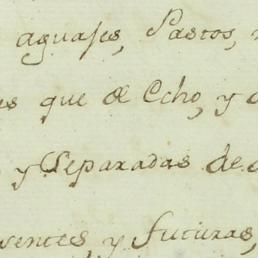 aguajes, Pastos,
que de Echo, y
y Separadas de
y futuras,